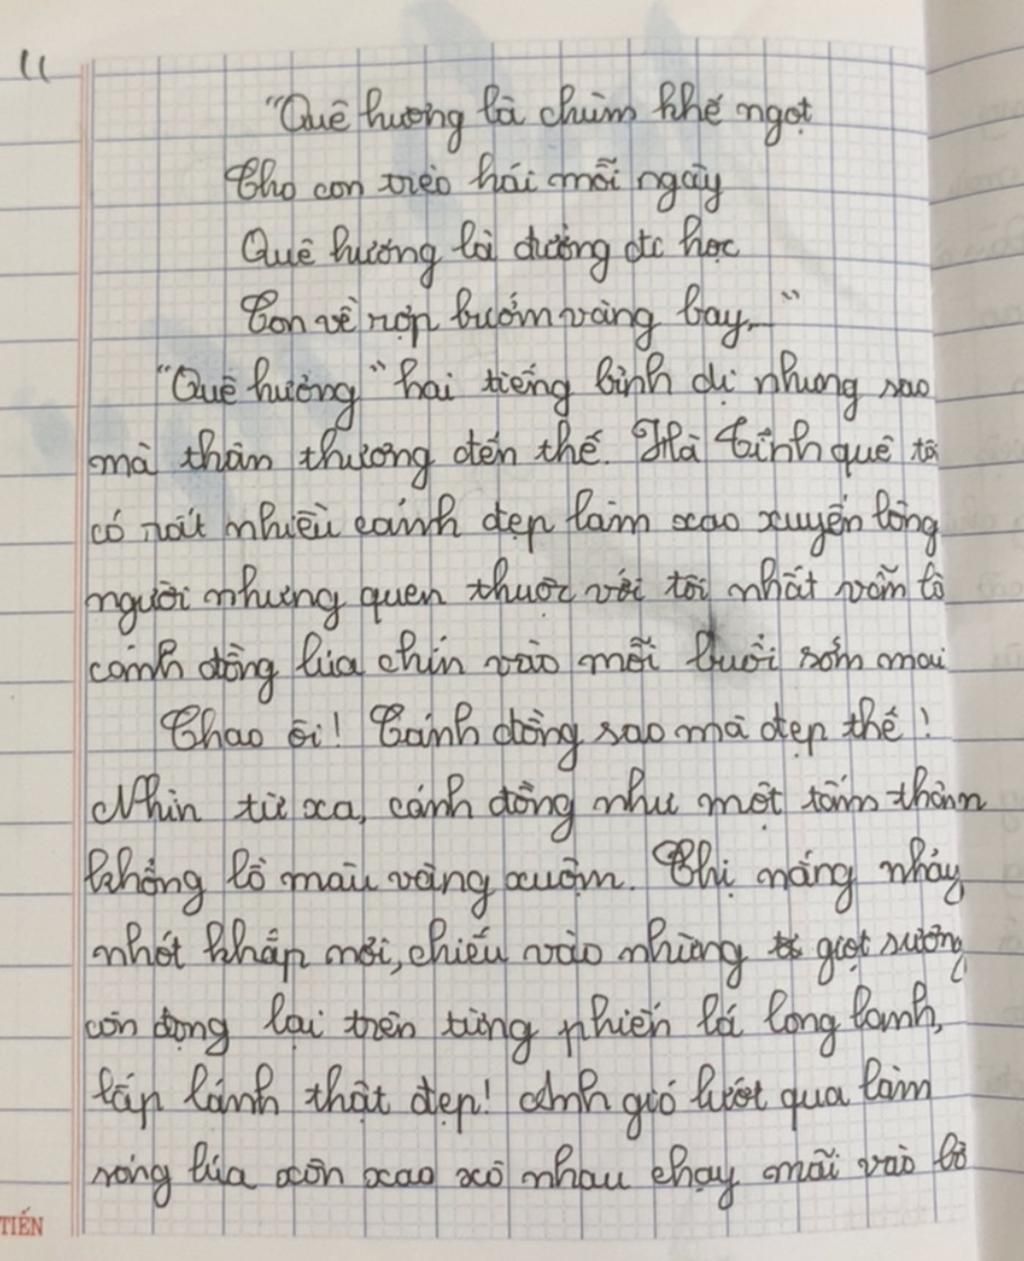 "Quê hương là chùm khế ngọt
Cho con trèo hái mỗi ngày
Quê hương là đường đi học
Con về rợp bướm vàng bay..."
"Quê hương" hai tiếng bình dị nhưng sao
mà thân thương đến thế. Hà Tĩnh quê tôi
có rất nhiều cảnh đẹp làm xao xuyến lòng
người nhưng quen thuộc với tôi nhất vẫn là
cánh đồng lúa chín vào mỗi buổi sớm mai
Chao ôi! Cánh đồng sao mà đẹp thế!
Nhìn từ xa, cánh đồng như một tấm thảm
khổng lồ màu vàng xuộm. Chị nắng nhảy
nhót khắp nơi, chiếu vào những giọt sương
còn đọng lại trên từng phiến lá long lanh,
lấp lánh thật đẹp! Anh gió lướt qua làm
sóng lúa xôn xao xô nhau chạy mãi vào bờ
TIẾN